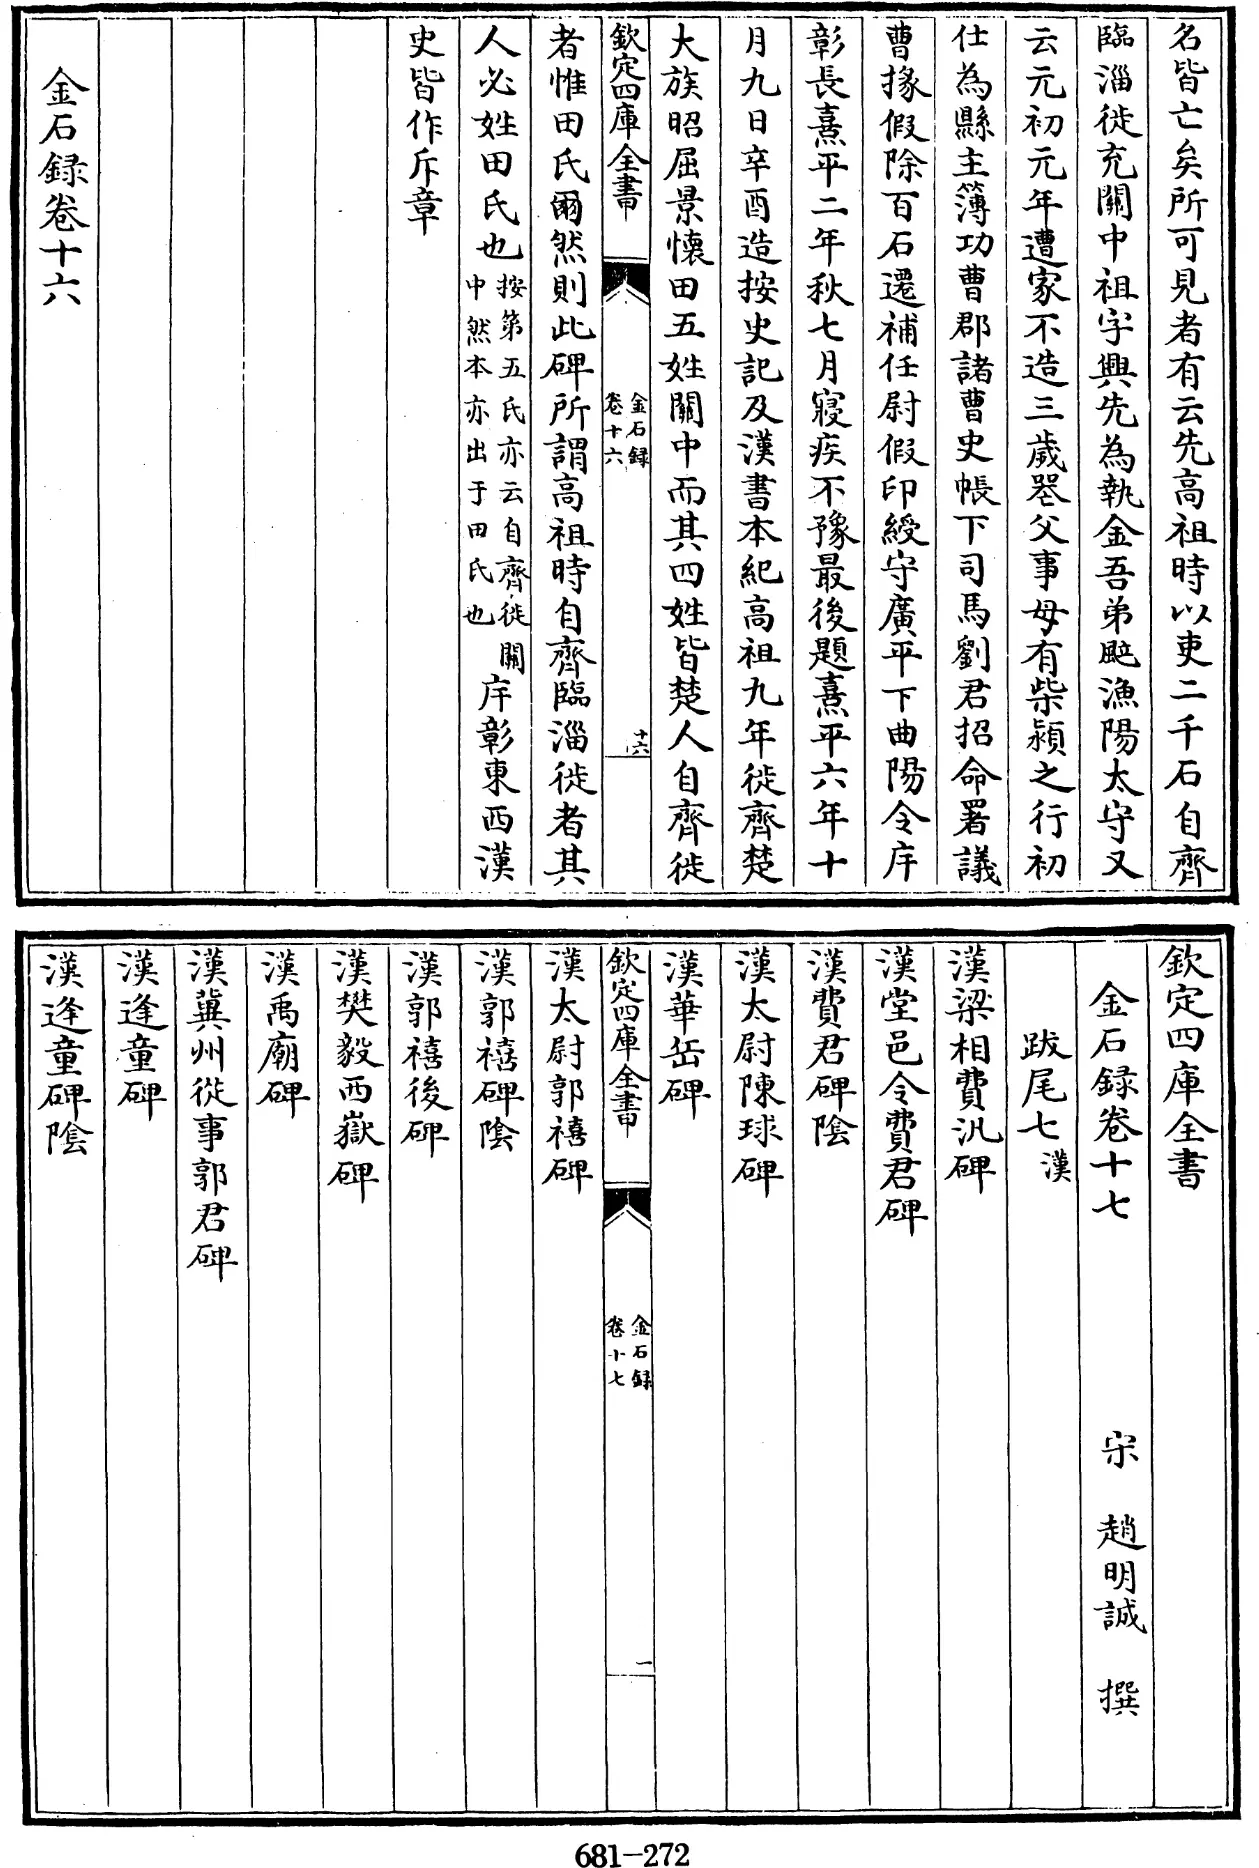 名皆亡矣所可見者有云先高祖時以吏二千石自齊
臨淄徙充關中祖字興先為執金吾弟颰漁陽太守又
云元初元年遭家不造三歲喪父事母有柴潁之行初
仕為縣主簿功曹郡諸曹史帳下司馬劉君招命署議
曹掾假除百石遷補任尉假印綬守廣平下曲陽令庍
彰長熹平二年秋七月寢疾不豫最後題熹平六年十
月九日辛酉造按史記及漢書本紀高祖九年徙齊楚
大族昭屈景懷田五姓關中而其四姓皆楚人自齊徙
欽定四庫全書
金石録
卷十六
十六
者惟田氏爾然則此碑所謂高祖時自齊臨淄徙者其
人必姓田氏也
按第五氏亦云自齊徙關
中然本亦出于田氏也
庍彰東西漢
史皆作斥章
金石録卷十六
欽定四庫全書
金石録卷十七
宋 趙明誠 撰
跋尾七漢
漢梁相費汎碑
漢堂邑令費君碑
漢費君碑陰
漢太尉陳球碑
漢華岳碑
欽定四庫全書
金石録
卷十七
一
漢太尉郭禧碑
漢郭禧碑陰
漢郭禧後碑
漢樊毅西嶽碑
漢禹廟碑
漢冀州從事郭君碑
漢逄童碑
漢逄童碑陰
681-272